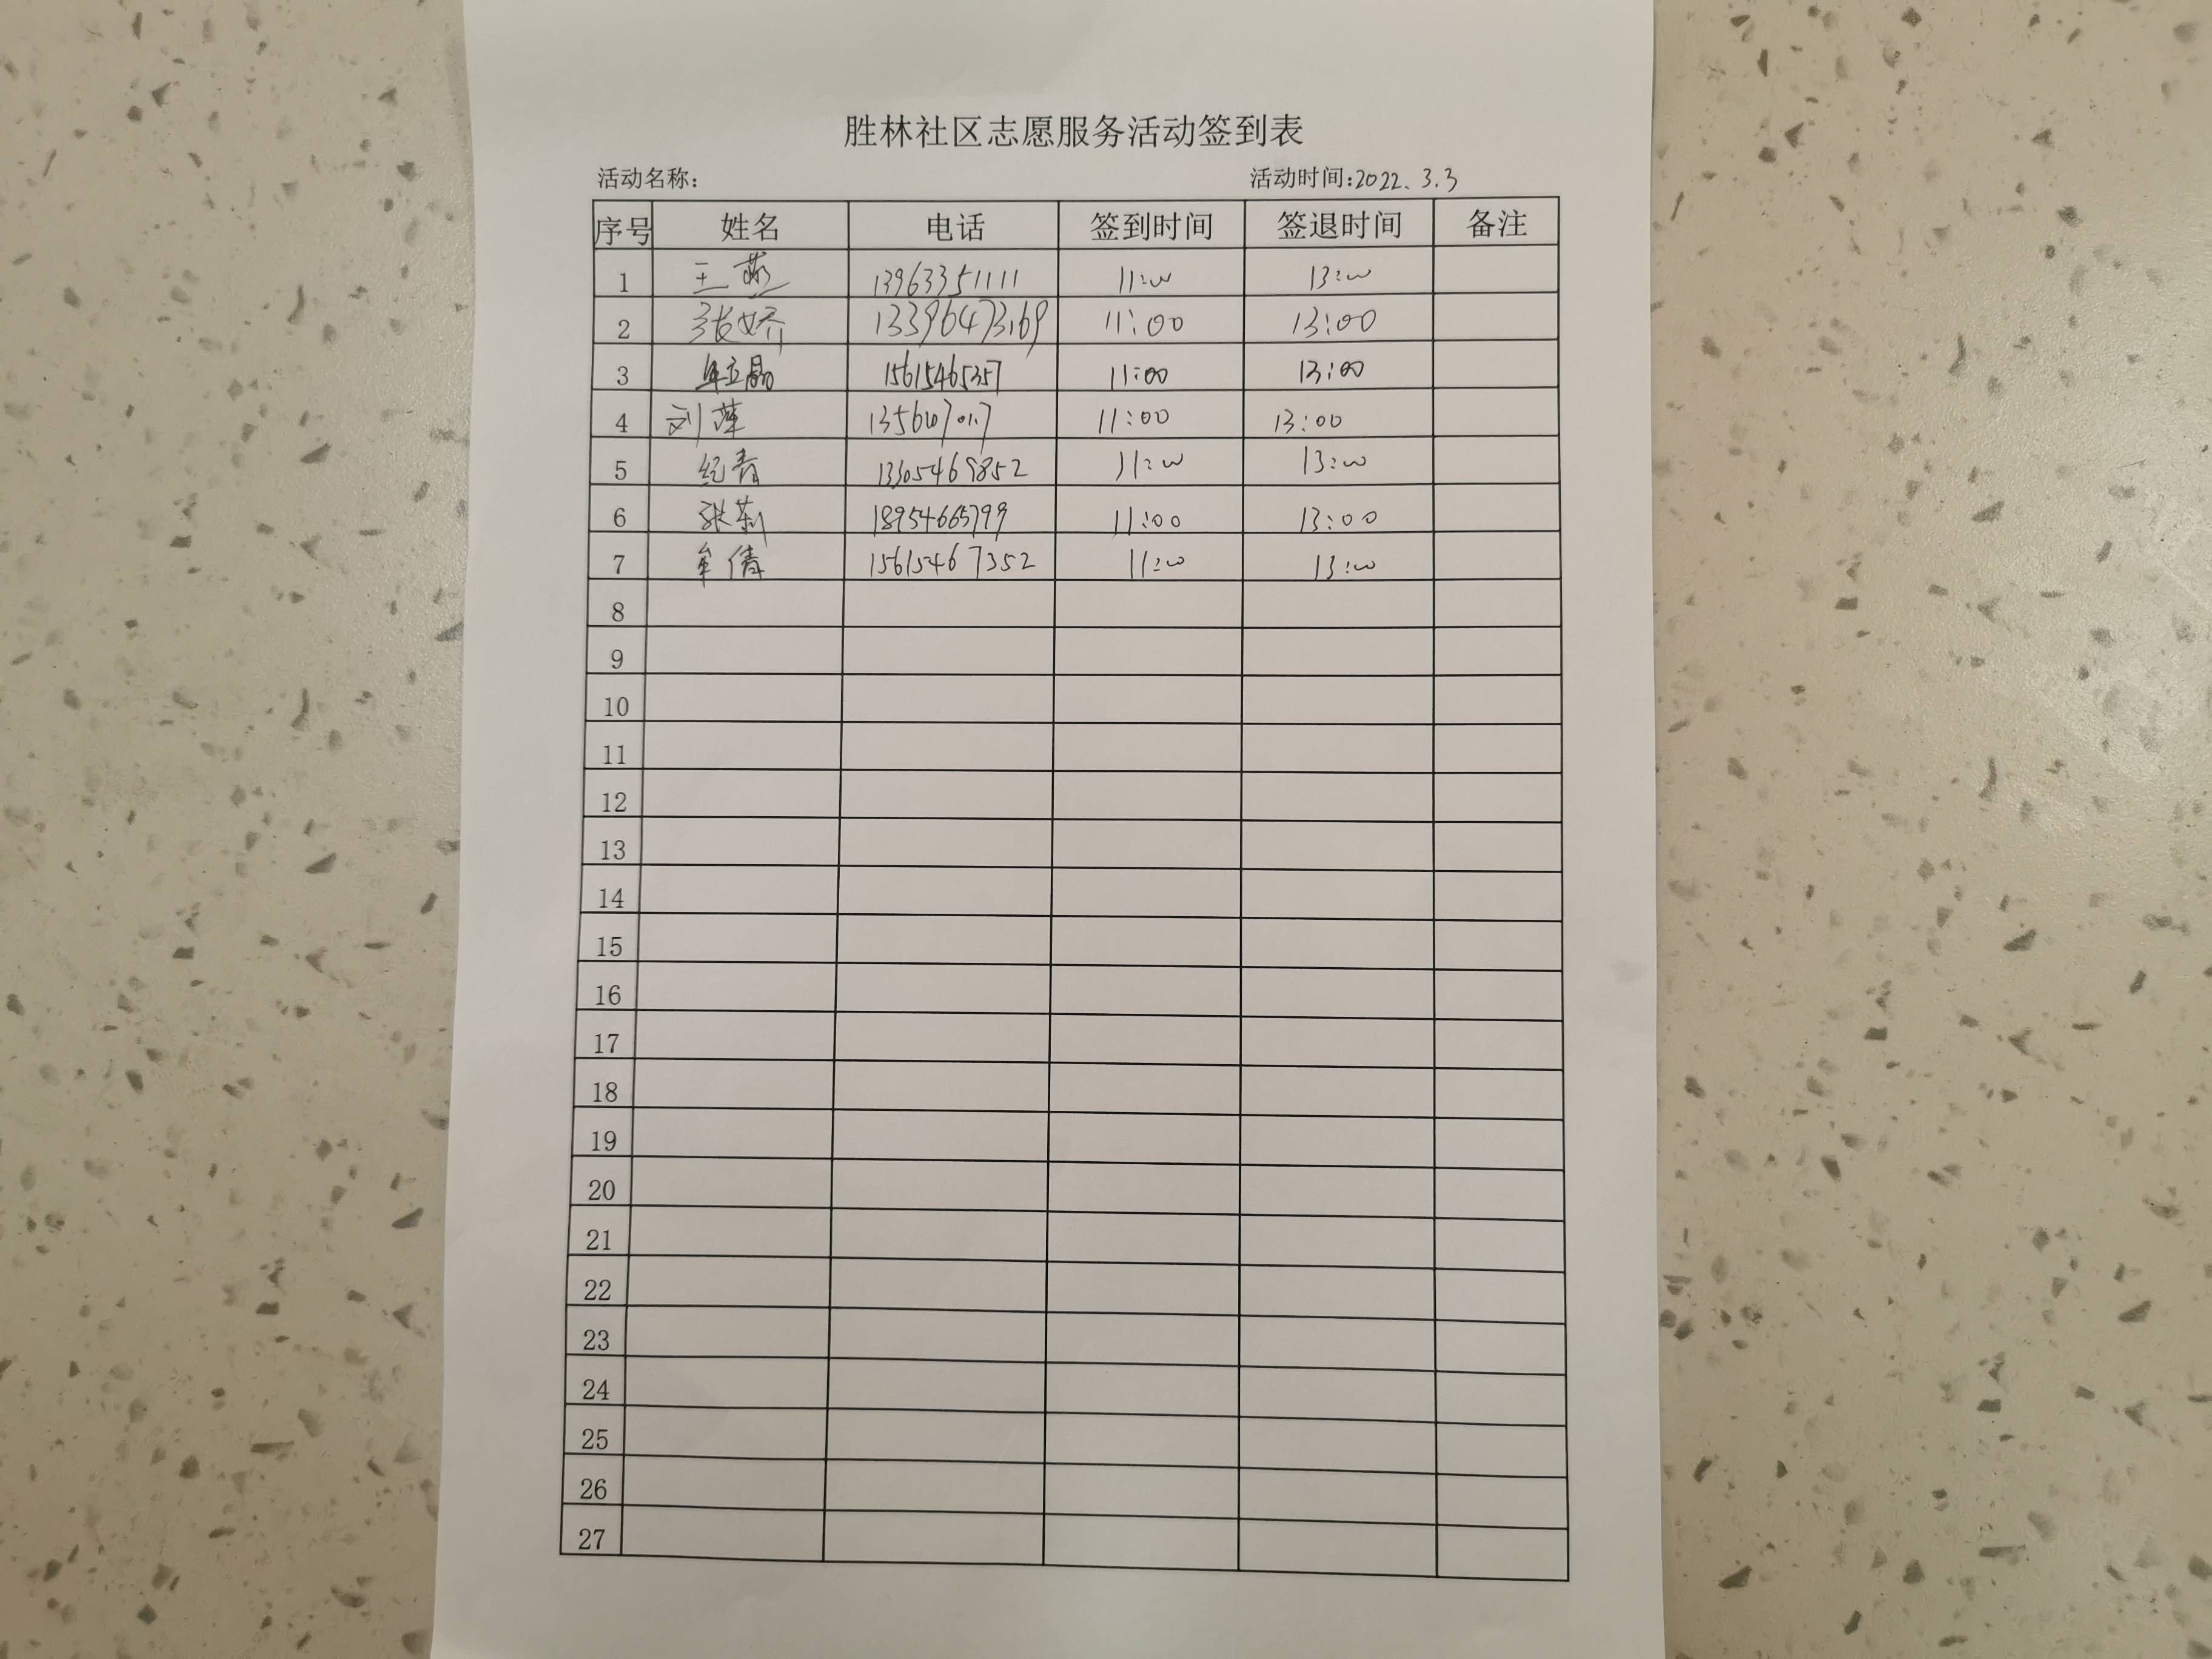 胜林社区志愿服务活动签到表
活动名称: 活动时间:2022.3.3
序号 姓名 电话 签到时间 签退时间 备注
1 王燕 13963351111 11:00 13:00
2 张娇 13396473169 11:00 13:00
3 15615465357 11:00 13:00
4 刘萍 11:00 13:00
5 纪青 13305469852 11:00 13:00
6 张莉 18954665799 11:00 13:00
7 牟倩 15615467352 11:00 13:00
8
9
10
11
12
13
14
15
16
17
18
19
20
21
22
23
24
25
26
27